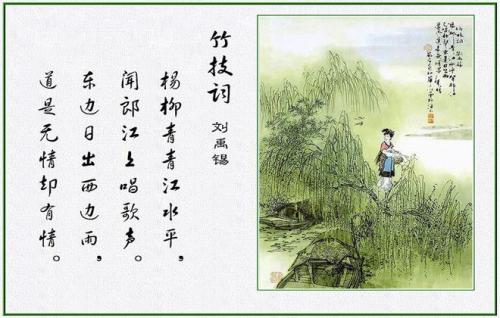 竹技词
刘禹锡
杨柳青青江水平,
闻郎江上唱歌声。
东边日出西边雨,
道是无情却有情。